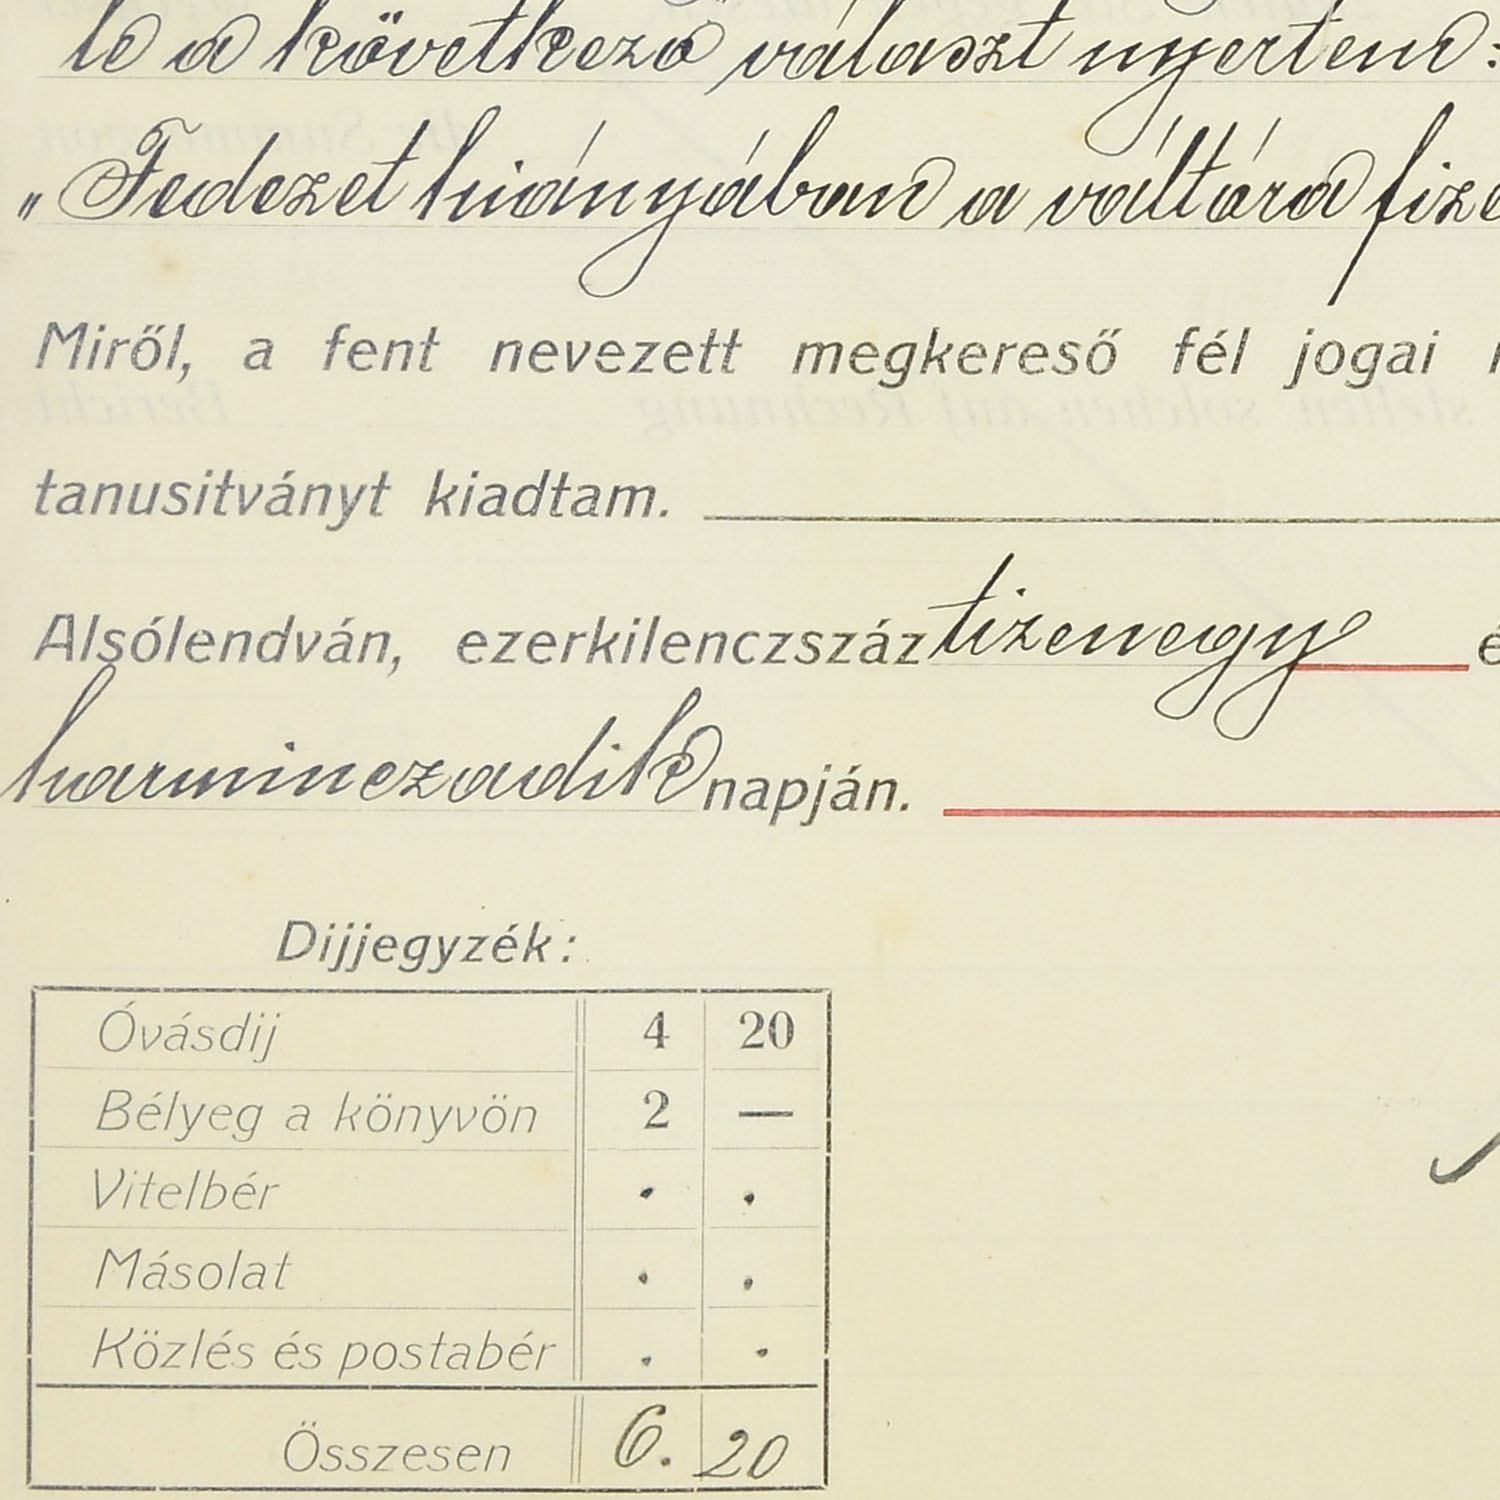 le a következő választ nyertem:
„Fedezet hiányában a váltóra fize
Miről, a fent nevezett megkereső fél jogai
tanusitványt kiadtam.
Alsólendván, ezerkilenczszáz tizenegy é
harminczadik napján.
Dijjegyzék:
Óvásdij 4 20
Bélyeg a könyvön 2 —
Vitelbér . .
Másolat . .
Közlés és postabér . .
Összesen 6. 20